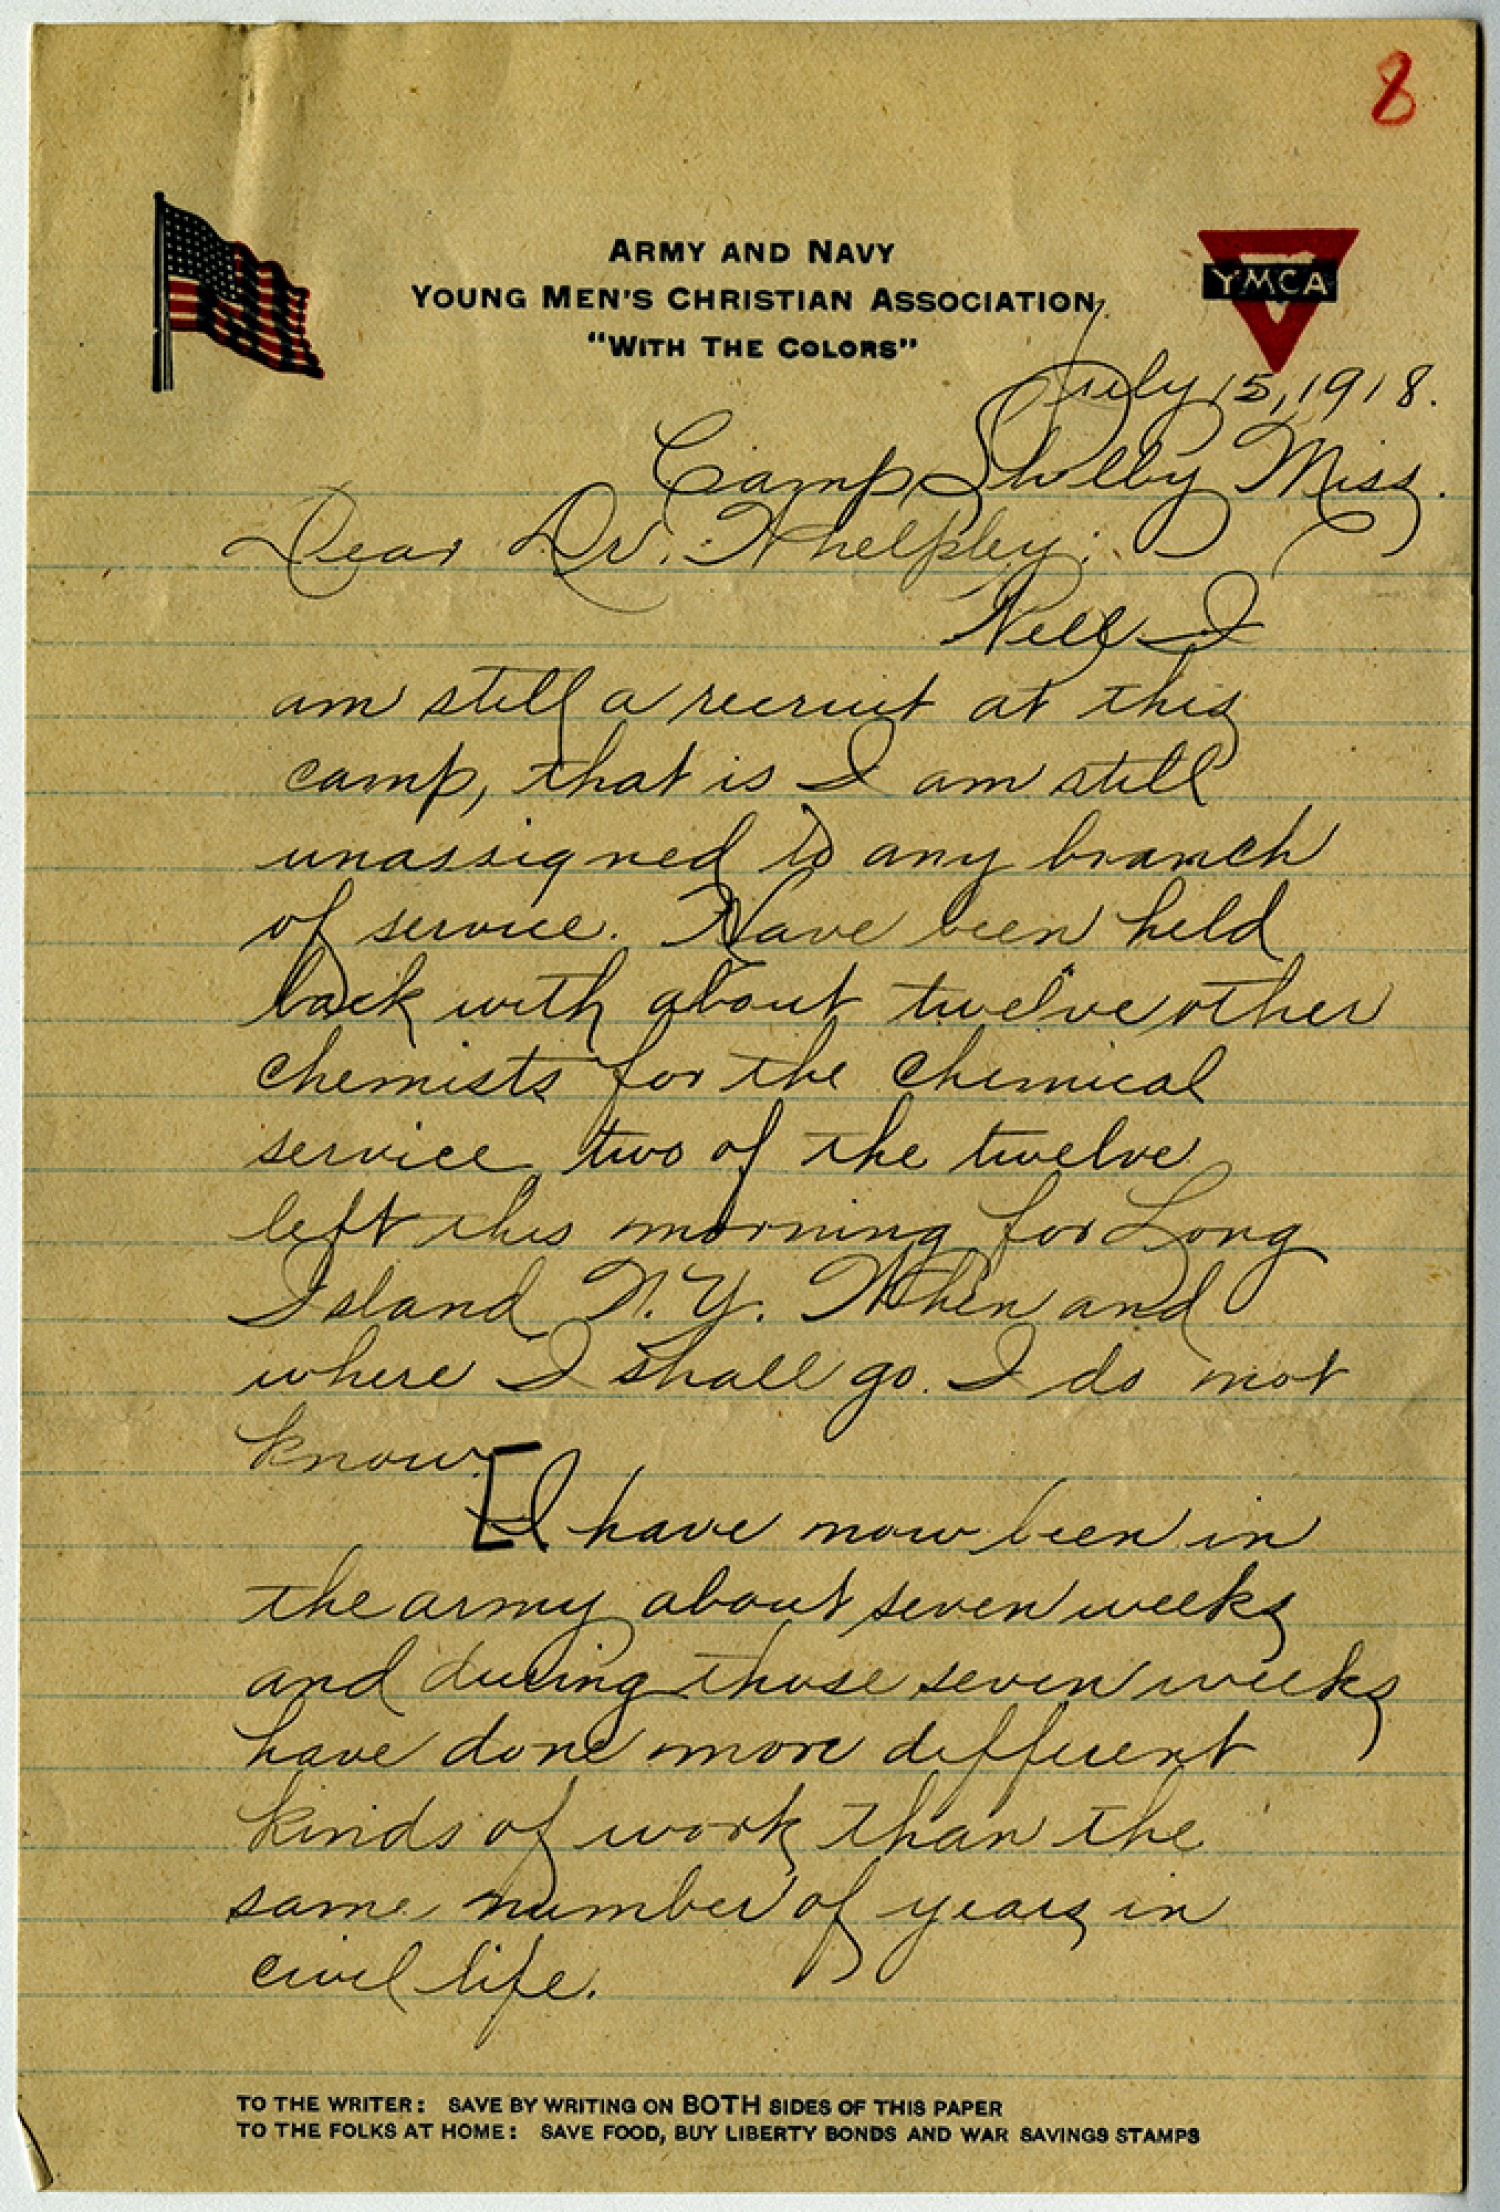 8
ARMY AND NAVY
YOUNG MEN'S CHRISTIAN ASSOCIATION
"WITH THE COLORS"
YMCA
July 15, 1918.
Camp Shelby Miss.
Dear Dr. Whelpley:
Well I
am still a recruit at this
camp, that is I am still
unassigned to any branch
of service. Have been held
back with about twelve other
chemists for the chemical
service two of the twelve
left this morning for Long
Island N.Y. When and
where I shall go I do not
know.
[I have now been in
the army about seven weeks
and during those seven weeks
have done more different
kinds of work than the
same number of years in
civil life.
TO THE WRITER: SAVE BY WRITING ON BOTH SIDES OF THIS PAPER
TO THE FOLKS AT HOME: SAVE FOOD, BUY LIBERTY BONDS AND WAR SAVINGS STAMPS